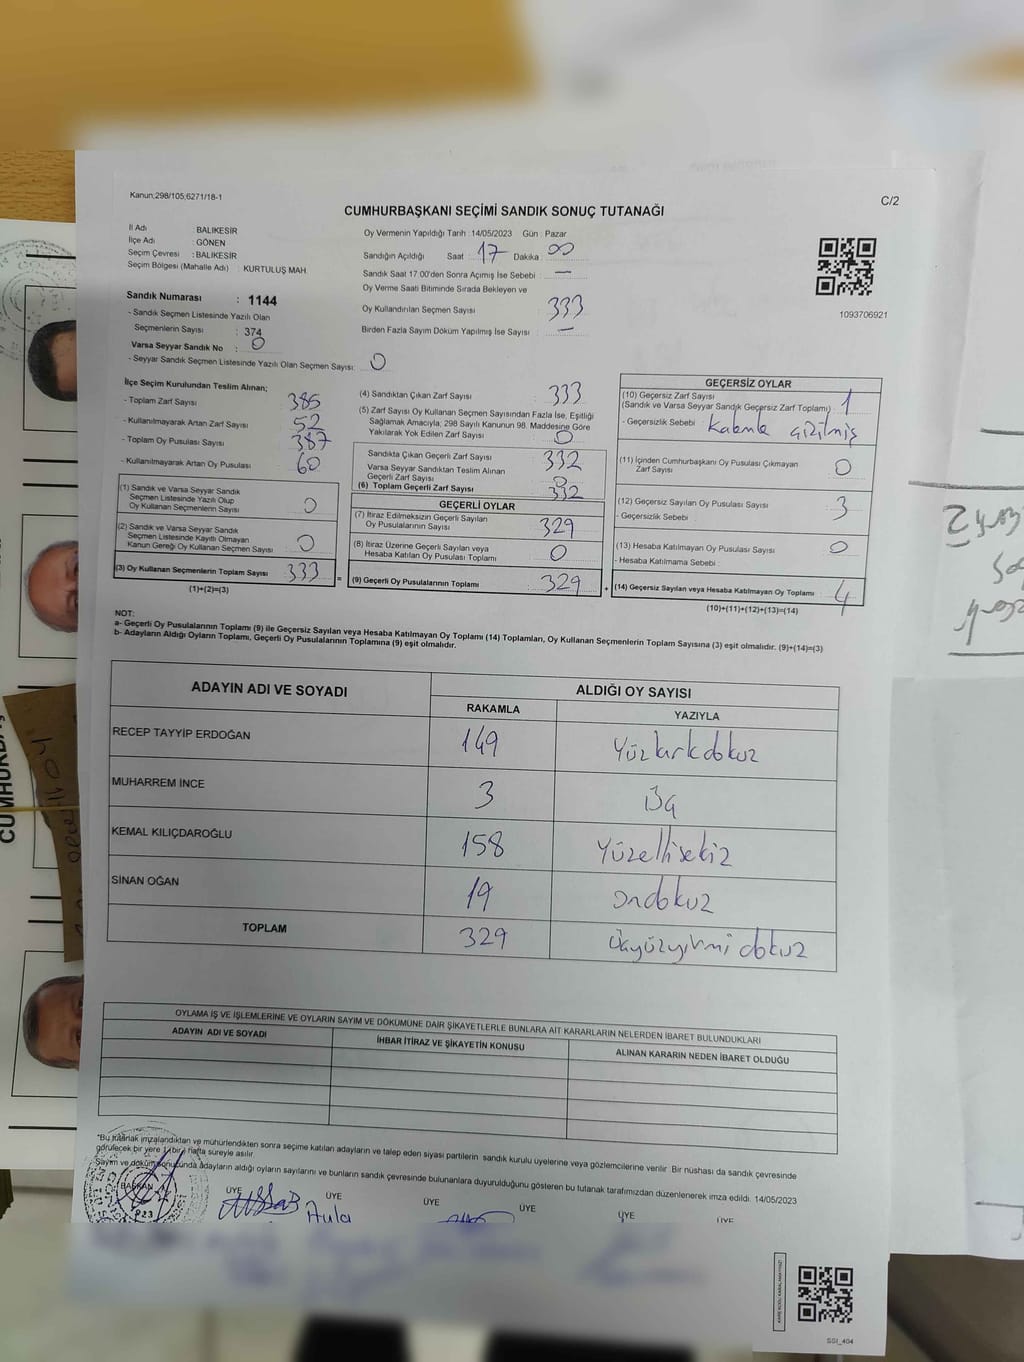 Kanun,298/105,6271/18-1
C/2
CUMHURBAŞKANI SEÇİMİ SANDIK SONUÇ TUTANAĞI
İl Adı : BALIKESİR
İlçe Adı : GÖNEN
Seçim Çevresi : BALIKESİR
Seçim Bölgesi (Mahalle Adı) : KURTULUŞ MAH.
Sandık Numarası : 1144
- Sandık Seçmen Listesinde Yazılı Olan
Seçmenlerin Sayısı : 374
Varsa Seyyar Sandık No : 0
- Seyyar Sandık Seçmen Listesinde Yazılı Olan Seçmen Sayısı: 0
Oy Vermenin Yapıldığı Tarih : 14/05/2023 Gün : Pazar
Sandığın Açıldığı Saat : 17 Dakika : 00
Sandık Saat 17.00'den Sonra Açımış İse Sebebi : —
Oy Verme Saati Bitiminde Sırada Bekleyen ve
Oy Kullandırılan Seçmen Sayısı : 333
Birden Fazla Sayım Döküm Yapılmış İse Sayısı : —
1093706921
İlçe Seçim Kurulundan Teslim Alınan;
- Toplam Zarf Sayısı : 385
- Kullanılmayarak Artan Zarf Sayısı : 52
- Toplam Oy Pusulası Sayısı : 387
- Kullanılmayarak Artan Oy Pusulası : 60
(1) Sandık ve Varsa Seyyar Sandık
Seçmen Listesinde Yazılı Olup
Oy Kullanan Seçmenlerin Sayısı : 0
(2) Sandık ve Varsa Seyyar Sandık
Seçmen Listesinde Kayıtlı Olmayan
Kanun Gereği Oy Kullanan Seçmen Sayısı : 0
(3) Oy Kullanan Seçmenlerin Toplam Sayısı : 333
(1)+(2)=(3)
(4) Sandıktan Çıkan Zarf Sayısı : 333
(5) Zarf Sayısı Oy Kullanan Seçmen Sayısından Fazla İse, Eşitliği
Sağlamak Amacıyla; 298 Sayılı Kanunun 98. Maddesine Göre
Yakılarak Yok Edilen Zarf Sayısı : 0
Sandıkta Çıkan Geçerli Zarf Sayısı : 332
Varsa Seyyar Sandıktan Teslim Alınan
Geçerli Zarf Sayısı : 0
(6) Toplam Geçerli Zarf Sayısı : 332
GEÇERLİ OYLAR
(7) İtiraz Edilmeksizin Geçerli Sayılan
Oy Pusulalarının Sayısı : 329
(8) İtiraz Üzerine Geçerli Sayılan veya
Hesaba Katılan Oy Pusulası Toplamı : 0
= (9) Geçerli Oy Pusulalarının Toplamı : 329
GEÇERSİZ OYLAR
(10) Geçersiz Zarf Sayısı
(Sandık ve Varsa Seyyar Sandık Geçersiz Zarf Toplamı) : 1
- Geçersizlik Sebebi : çizilmiş
(11) İçinden Cumhurbaşkanı Oy Pusulası Çıkmayan
Zarf Sayısı : 0
(12) Geçersiz Sayılan Oy Pusulası Sayısı : 3
- Geçersizlik Sebebi :
(13) Hesaba Katılmayan Oy Pusulası Sayısı : 0
- Hesaba Katılmama Sebebi :
+ (14) Geçersiz Sayılan veya Hesaba Katılmayan Oy Toplamı : 4
(10)+(11)+(12)+(13)=(14)
NOT:
a- Geçerli Oy Pusulalarının Toplamı (9) ile Geçersiz Sayılan veya Hesaba Katılmayan Oy Toplamı (14) Toplamları, Oy Kullanan Seçmenlerin Toplam Sayısına (3) eşit olmalıdır. (9)+(14)=(3)
b- Adayların Aldığı Oyların Toplamı, Geçerli Oy Pusulalarının Toplamına (9) eşit olmalıdır.
ADAYIN ADI VE SOYADI ALDIĞI OY SAYISI
RAKAMLA YAZIYLA
RECEP TAYYİP ERDOĞAN 149 Yüzkırkdokuz
MUHARREM İNCE 3 Üç
KEMAL KILIÇDAROĞLU 158 Yüzellisekiz
SİNAN OĞAN 19 ondokuz
TOPLAM 329 Üçyüzyirmi dokuz
OYLAMA İŞ VE İŞLEMLERİNE VE OYLARIN SAYIM VE DÖKÜMÜNE DAİR ŞİKAYETLERLE BUNLARA AİT KARARLARIN NELERDEN İBARET BULUNDUKLARI
ADAYIN ADI VE SOYADI İHBAR İTİRAZ VE ŞİKAYETİN KONUSU ALINAN KARARIN NEDEN İBARET OLDUĞU
*Bu tutanak imzalandıktan ve mühürlendikten sonra seçime katılan adayların ve talep eden siyasi partilerin sandık kurulu üyelerine veya gözlemcilerine verilir. Bir nüshası da sandık çevresinde
görülecek bir yere 1 (bir) hafta süreyle asılır.
Sayım ve döküm sonucunda adayların aldığı oyların sayılarını ve bunların sandık çevresinde bulunanlara duyurulduğunu gösteren bu tutanak tarafımızdan düzenlenerek imza edildi. 14/05/2023
BAŞKAN ÜYE ÜYE ÜYE ÜYE ÜYE ÜYE
SSI_404